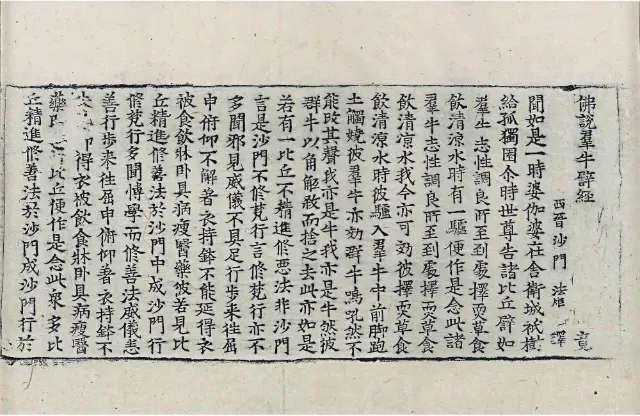 佛說羣牛譬經 竟
西晉沙門 法炬 譯
聞如是一時婆伽婆在舍衛城祇樹
給孤獨園尒時世尊告諸比丘譬如
羣牛志性調良所至到處擇耎草食
飲清涼水時有一驢便作是念此諸
羣牛志性調良所至到處擇耎草食
飲清凉水我今亦可効彼擇耎草食
飲清涼水時彼驢入羣牛中前脚跑
土觸嬈彼羣牛亦効群牛鳴吼然不
能改其聲我亦是牛我亦是牛然彼
群牛以角觝殺而捨之去此亦如是
若有一比丘不精進修惡法非沙門
言是沙門不修梵行言修梵行亦不
多聞邪見威儀不具足行步来往屈
申俯仰不解著衣持鉢不能延得衣
被食飲牀卧具病瘦醫藥彼若見比
丘精進修善法於沙門中成沙門行
修梵行多聞博學而修善法威儀悉
善行步来往屈申俯仰著衣持鉢不
得衣被飲食牀卧具病瘦醫
藥 比丘便作是念此衆多比
丘精進修善法於沙門成沙門行於